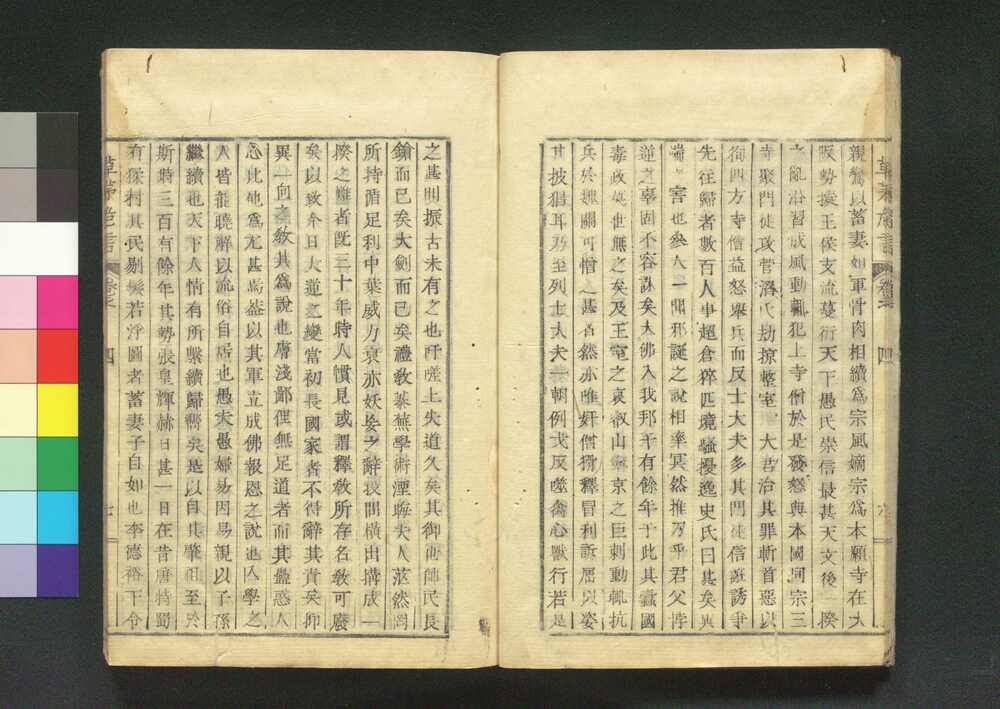 草茅危言 卷之 四
親鸞以蓄妻如軍骨肉相續為宗風嫡宗為本願寺在大
阪勢擬王侯支流蔓衍天下愚氓崇信最甚天文後一揆
之亂沿習成風動輒犯上寺僧於是發怒與本國同宗三
寺聚門徒攻菅濟氏劫掠整室 大君治其罪斬首惡以
徇四方寺僧益怒舉兵而反士大夫多其門徒信誑誘爭
先往歸者數百人事超倉猝匹境騷擾逸史氏曰甚矣異
端之害也矣人一聞邪誕之說相率冥然推刃乎君父悖
逆之辜固不容誅矣大佛入我邦千有餘年于此其蠹國
毒政奕世無之矣及王室之衰叡山南京之巨刹動輒抗
兵於魏闕可憎之甚者然亦唯奸僧猾釋冒利訴屈以姿
其披猖耳乃至列士大夫一朝例戈反噬禽心獸行若是
之甚則振古未有之也吁嗟上失道久矣其御也師民長
鎗而已矣大劍而已矣禮敎蓁蕪學術湮晦夫人茫然罔
所持循足利中葉威力衰亦妖妄之辭投間橫出搆成一
揆之難者既三十年時人慣見或謂釋敎所存名敎可廢
矣以致今日大道之變當初長國家者不得辭其責矣仰
異一向之敎其為說也膚淺鄙俚無足道者而其蠱惑人
心比他為尤甚焉蓋以其軍立成佛報恩之說也入學之
人皆能曉解以流俗自居也愚夫愚婦易因易親以子孫
繼續也天下人情有所繫續歸嚮矣是以自其肇祖至於
斯時三百有餘年其勢張皇輝赫日甚一日在昔唐特蜀
有猱村其民剔髮若浮圖者蓄妻子自如也李德裕下令
草茅危言 卷之 四 七